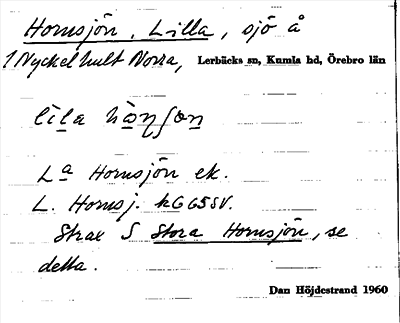 Hornsjön, Lilla, sjö å
1 Nyckelhult Norra, Lerbäcks sn, Kumla hd, Örebro län
lila
La Hornsjön ek.
L. Hornsj. hGG5SV.
Strax S Stora Hornsjön, se
detta.
Dan Höjdestrand 1960